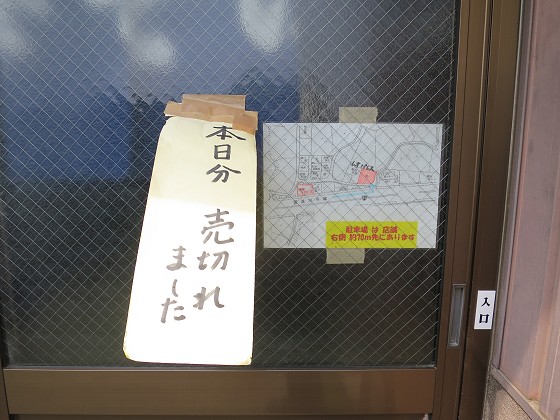 本日分
売切れ
ました
駐車場 は 店舗
右側 約70m先にあります
入口